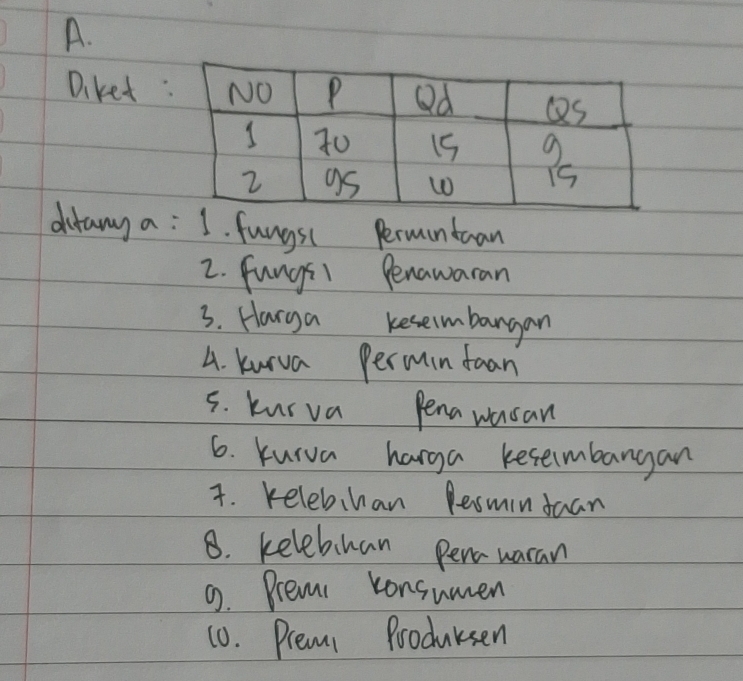 A.
Diket : NO P Qd Qs
1 70 15 9
2 95 10 15
ditanya : 1. fungsi Permintaan
2. fungsi Penawaran
3. Harga keseimbangan
4. kurva Permintaan
5. kurva Penawaran
6. kurva harga keseimbangan
7. kelebihan Permintaan
8. kelebihan Penawaran
9. Premi konsumen
10. Premi Produksen